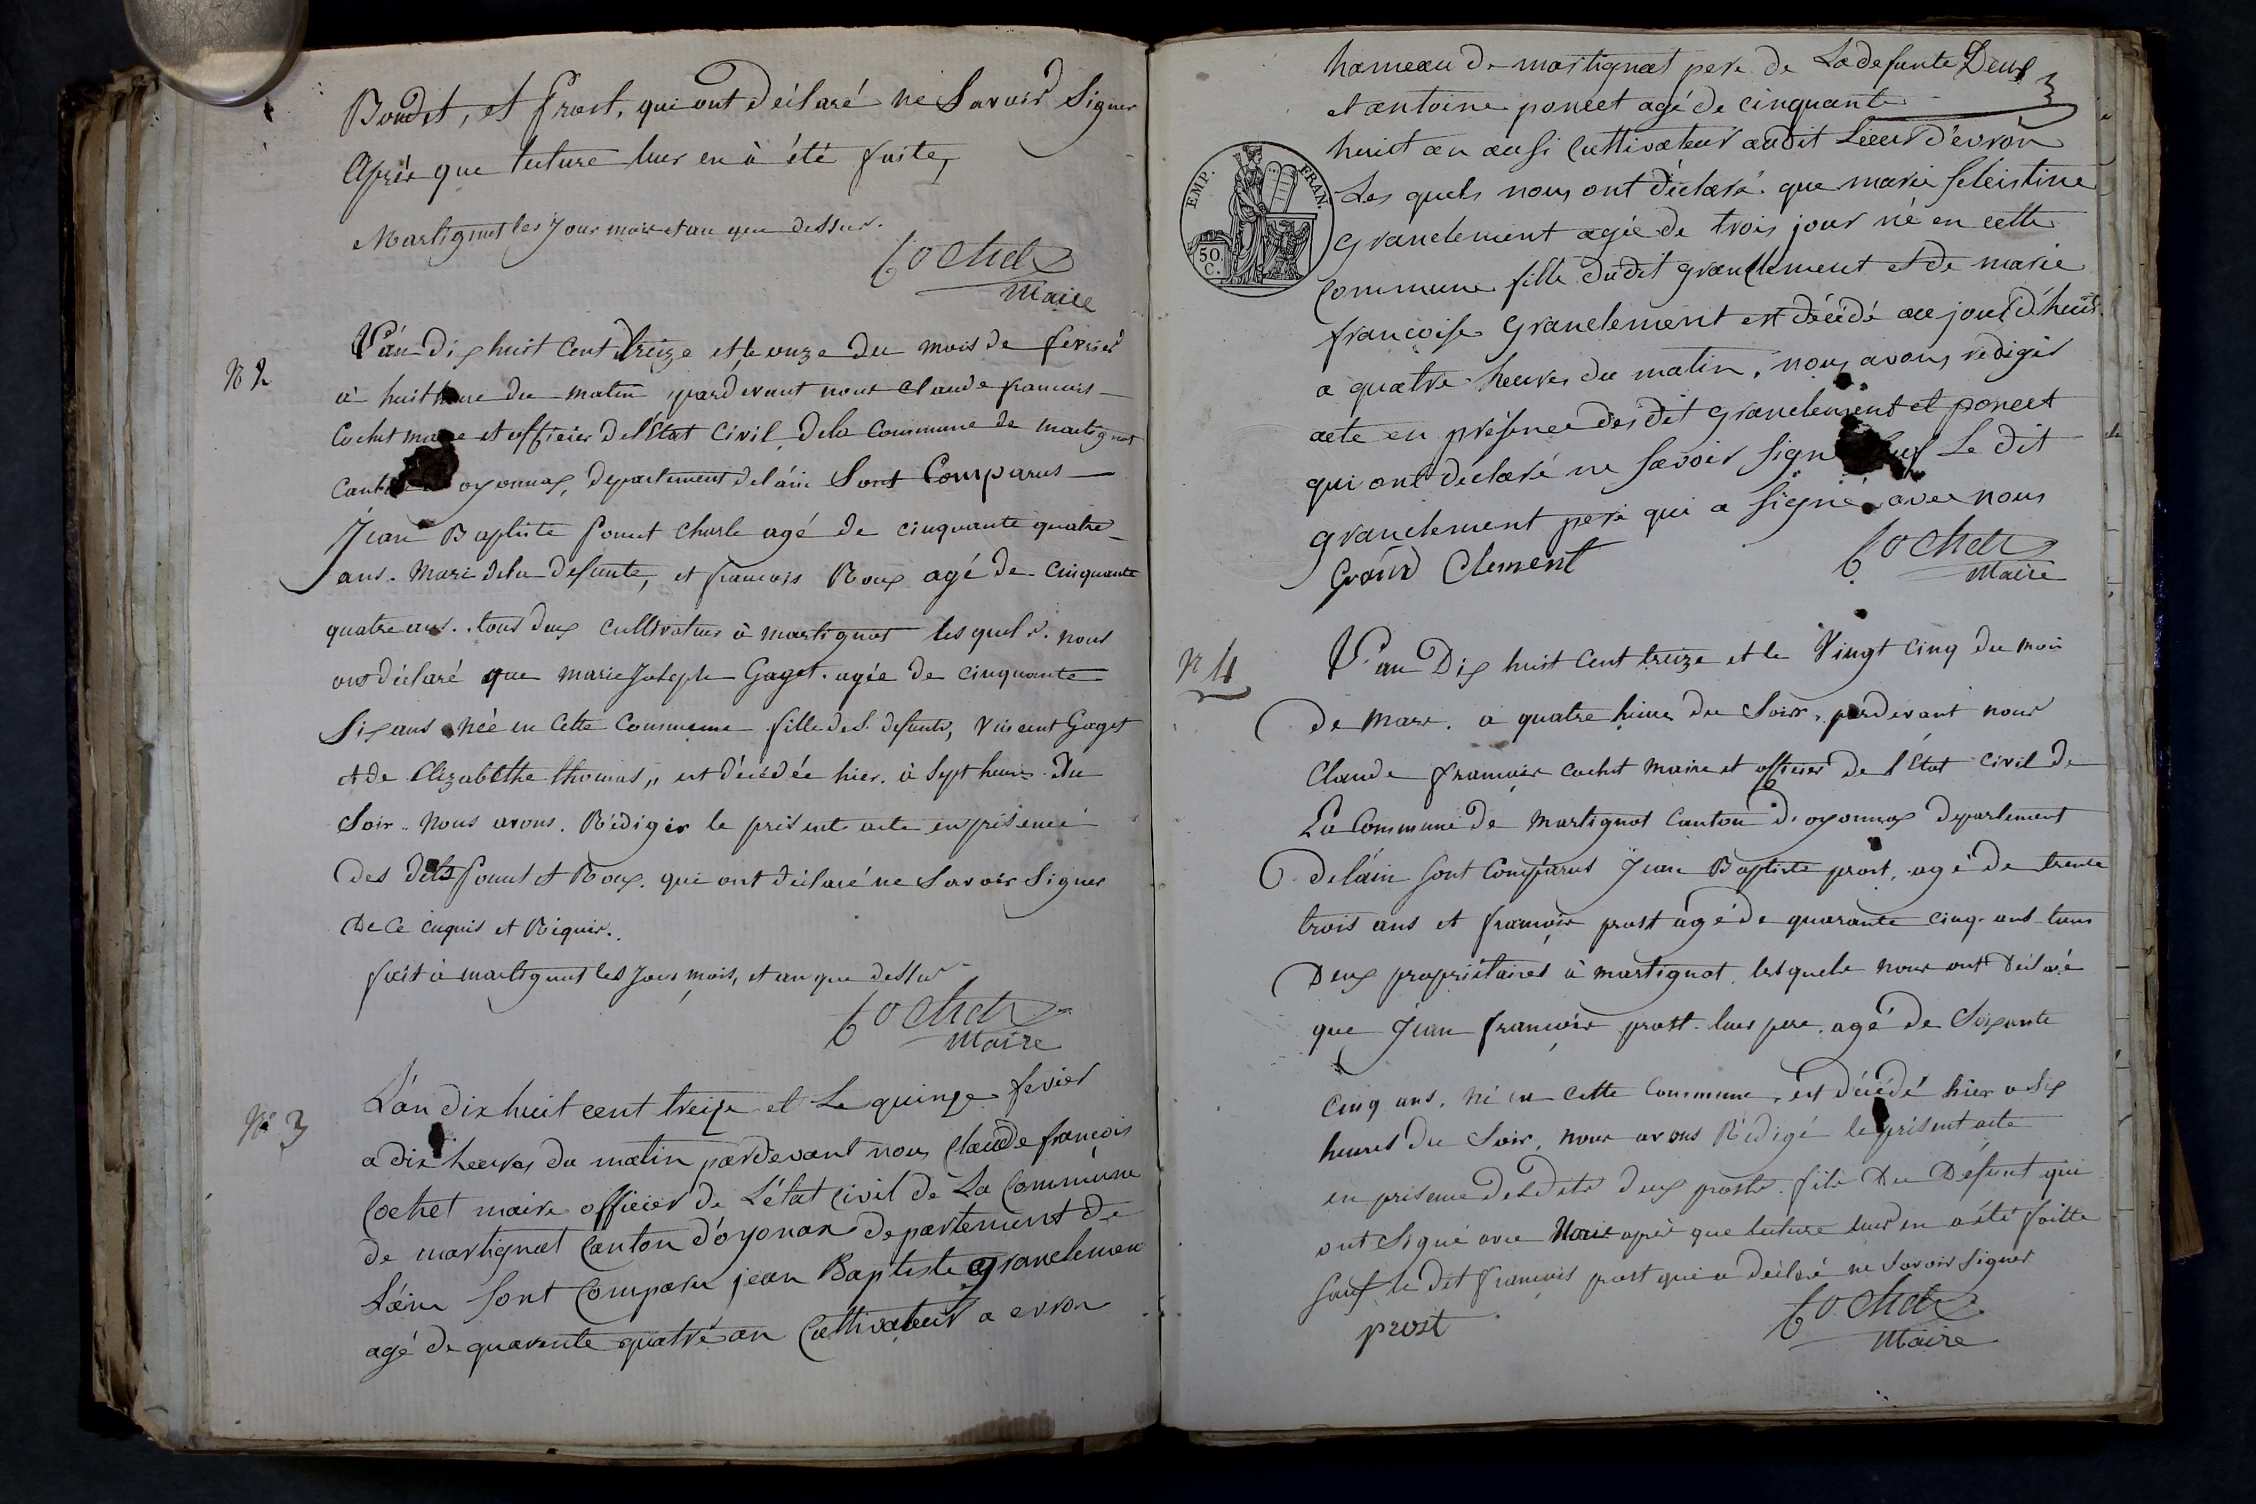 Boudet, et Prost, qui ont déclaré ne Savoir Signer
Après que lecture leur en à été faite,
Martignat les Jour mois et an que dessus.
Cochet
Maire
N 2
L'án dix huit Cent treize et le onze du mois de fevrier
à huit heure du matin, pardevant nous Claude francois
Cochet maire et officier de l'Etat Civil dela Commune de martignat
Canton oyonnax, departement del'áin Sont Comparus
Jean Baptiste Poncet Charle agé de cinquante quatre
ans. Mari dela defunte, et francois Roux agé de Cinquante
quatre ans. tous deux cultivateurs à martignat lesquels nous
ont déclaré que marie Joseph Gaget. agée de cinquante
Six ans née en Cette Commune fille de defunts, Vincent Gaget
et de Elizabethe thomas,, est décédée hier. à Sept heures du
Soir.. Nous avons. Rédigér le present acte en présence
des dits Poncet et Roux. qui ont déclaré ne Savoir Signer
De Ce enquis et Réquis..
fait à martignat les Jour mois, et an que dessus
Cochet
Maire
N° 3
L'án dix huit cent treize et Le quinze fevier
a dix heeures du matin pardevant nous Claude francois
Cochet maire officier de L'état Civil de La Commune
de martignat Canton d'oyonax departement de
L'ain Sont Comparu jean Baptiste granclemen
agé de quarente quatre an Cultivateur a evron
hameau de martignat pere de La defunte Deux
et antoine poncet agé de cinquante
huit an aussi Cultivateur audit Lieeu d'evron
EMP. FRAN.
50 C.
Les quels nous ont déclaré que marie féleistine
granclement agée de trois jour né en cette
Commune fille dudit granclement et de marie
francoise Granclement est décédé aujourd'huit
a quatre heures du matin, nous avons rediger
acte en présence des dit granclement et poncet
qui ont déclaré ne Savoir Sign Le dit
granclement pere qui a Signé avec nous
Grand Clement
Cochet
Maire
N 4
L'an Dix huit Cent treize et le Vingt Cinq du mois
de Mars. a quatre heures du Soir, pardevant nous
Claude francois cochet Maire et officier de l'Etat Civil de
La Commune de Martignat Canton d'oyonnax departement
de l'áin Sont Comparus Jean Baptiste prost, agé de trente
trois ans et francois prost agé de quarante cinq ans tous
Deux propriétaires à martignat. lesquels nous ont Déclaré
que Jean francois prost leur pere. agé de Soixante
Cinq ans. né en Cette Commune, est décédé hier a Six
heures du Soir, nous avons Rédigé le présent acte
en présence desdits deux prosts. fils Du Défunt qui
ont Signé avec Nous après que lecture leur en a été faitte
Sauf le dit francois prost qui a déclaré ne Savoir Signer
prost
Cochet
Maire